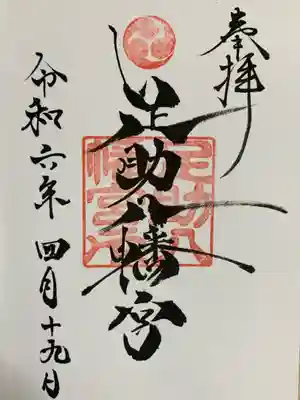 奉拝
足助八幡宮
足助八幡宮
令和六年 四月十九日